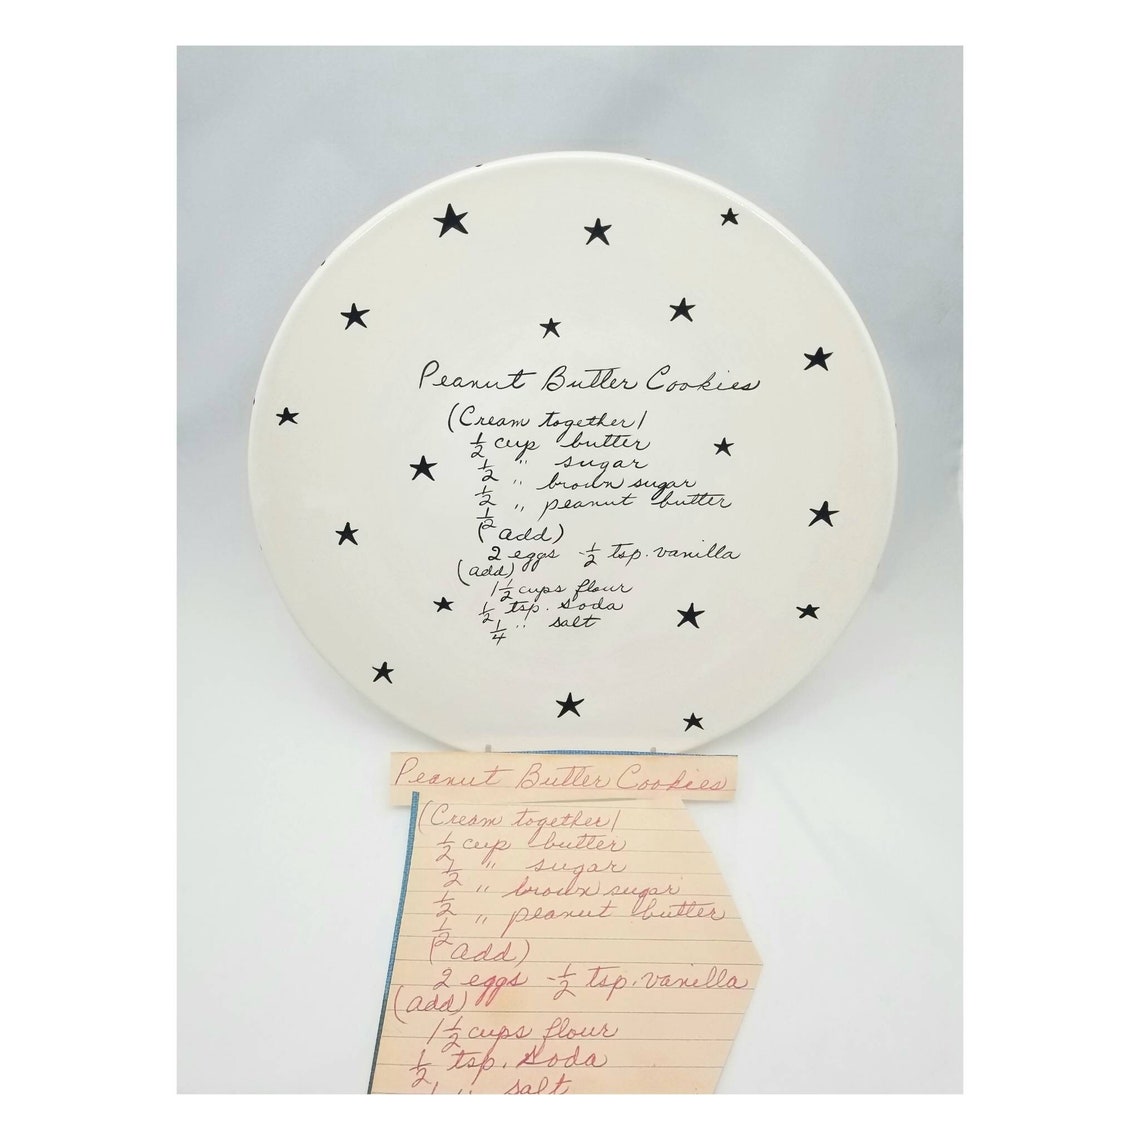 Peanut Butter Cookies
(Cream together)
1/2 cup butter
1/2 " sugar
1/2 " brown sugar
1/2 " peanut butter
(add)
2 eggs - 1/2 tsp. vanilla
(add)
1 1/2 cups flour
1/2 tsp. soda
1/4 " salt
Peanut Butter Cookies
(Cream together)
1/2 cup butter
1/2 " sugar
1/2 " brown sugar
1/2 " peanut butter
(add)
2 eggs - 1/2 tsp. vanilla
(add)
1 1/2 cups flour
1/2 tsp. soda
" salt